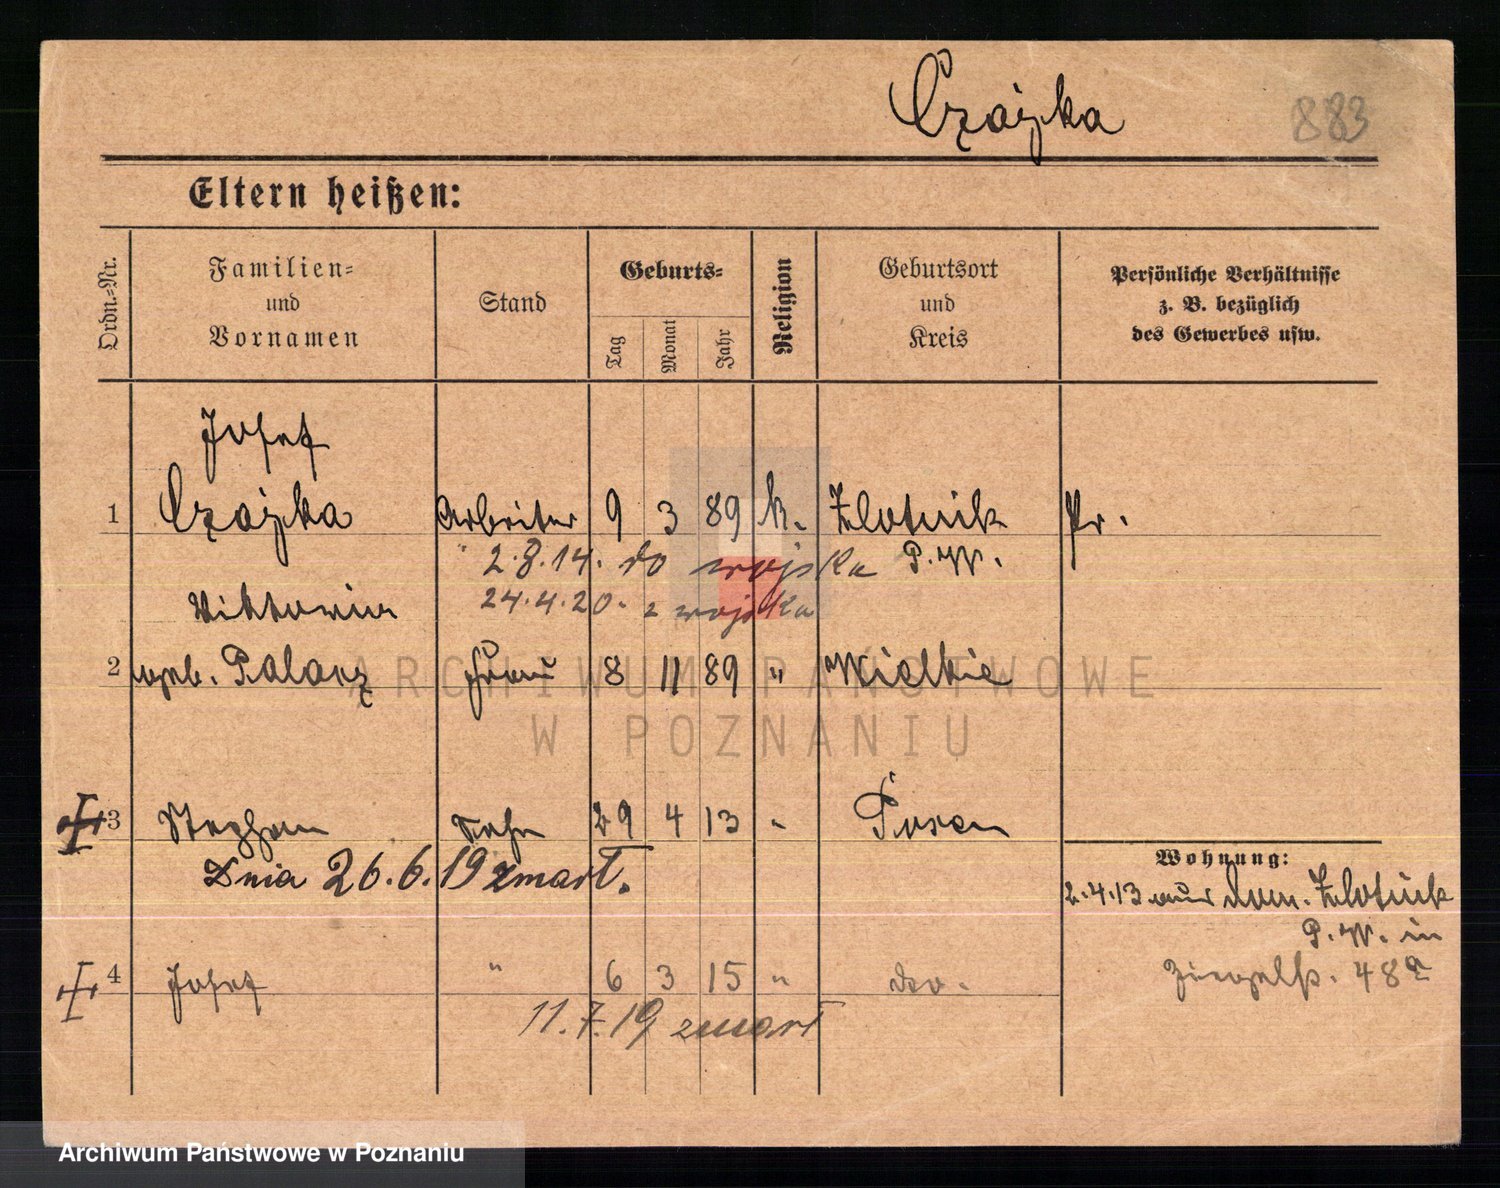 Czajka 883
Eltern heißen:
Ordn.-Nr.
Familien-
und
Vornamen
Stand
Geburts-
Tag
Monat
Jahr
Religion
Geburtsort
und
Kreis
Persönliche Verhältnisse
z. B. bezüglich
des Gewerbes usw.
Josef
1 Czajka Arbeiter 9 3 89 k. Zlotnik Pr.
2.8.14. do wojska P.W.
Viktoria
24.4.20. z wojska
2 geb. Palacz Frau 8 11 89 " Wielkie
ARCHIWUM PAŃSTWOWE
W POZNANIU
3 Stephan Sohn 29 4 13 " Posen
Dnia 26.6.19 zmarł.
Wohnung:
2.4.13 aus Dom. Zlotnik
P.W. in
4 Josef " 6 3 15 " do.
Ziegelstr. 48a
11.7.19 zmarł
Archiwum Państwowe w Poznaniu